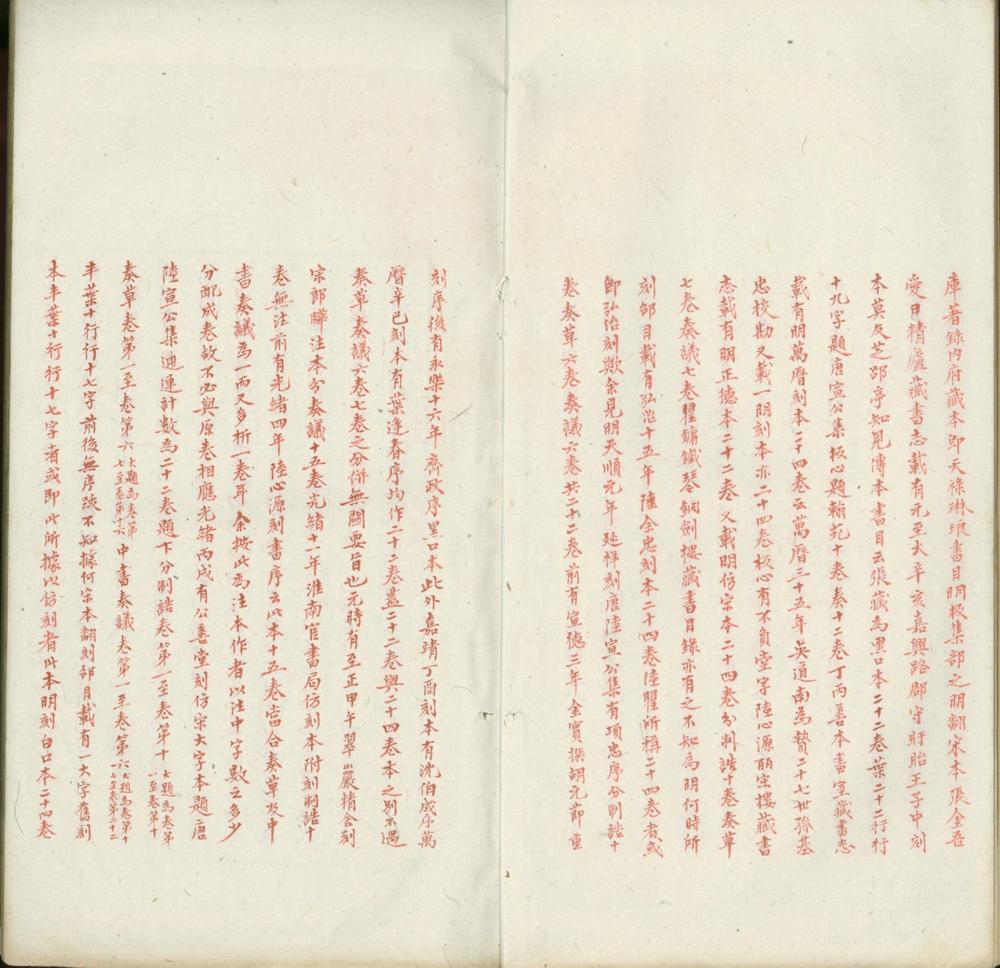 庫著錄內府藏本即天祿琳琅書目明板集部之明翻宋本張金吾
愛日精廬藏書志載有元至大辛亥嘉興路郡守盱眙王子中刻
本莫友芝郘亭知見傳本書目云張藏為黑口本二十二卷葉二十二行行
十九字題唐宣公集板心題翰苑十卷奏十二卷丁丙善本書室藏書志
載有明萬曆刻本二十四卷云萬曆三十五年吳道南為贄二十七世孫基
忠校勘又載一明刻本亦二十四卷板心有不負堂字陸心源皕宋樓藏書
志載有明正德本二十二卷又載明仿宋本二十四卷分制誥十卷奏草
七卷奏議七卷瞿鏞鐵琴銅劍樓藏書目錄亦有之不知為明何時所
刻邵目載有弘治十五年陸金忠刻本二十四卷陸瞿所稱二十四卷者或
即弘治刻歟余見明天順元年延祥刻唐陸宣公集有項忠序分制誥十
卷奏草六卷奏議六卷共二十二卷前有宣德三年金實撰胡元節重
刻序後有永樂十六年齊政序黑口本此外嘉靖丁酉刻本有沈伯咸序萬
曆辛巳刻本有葉逢春序均作二十二卷蓋二十二卷與二十四卷本之別不過
奏草奏議六卷七卷之分併無關要旨也元時有至正甲午翠巖精舍刻
宋郎曄注本分奏議十五卷光緒十一年淮南官書局仿刻本附刻制誥十
卷無注前有光緒四年陸心源刻書序云此本十五卷當合奏草及中
書奏議為一而又多析一卷耳余按此為注本作者以注中字數之多少
分配成卷故不必與原卷相應光緒丙戌有公善堂刻仿宋大字本題唐
陸宣公集通連計數為二十二卷題下分制誥卷第一至卷第十大題為卷第一至卷第十
奏草卷第一至卷第六大題為卷第十七至卷第十六中書奏議卷第一至卷第六大題為卷第十七至卷第二十二
半葉十行行十七字前後無序跋不知據何宋本翻刻邵目載有一大字舊刻
本半葉十行行十七字者或即此所據以仿刻者此本明刻白口本二十四卷